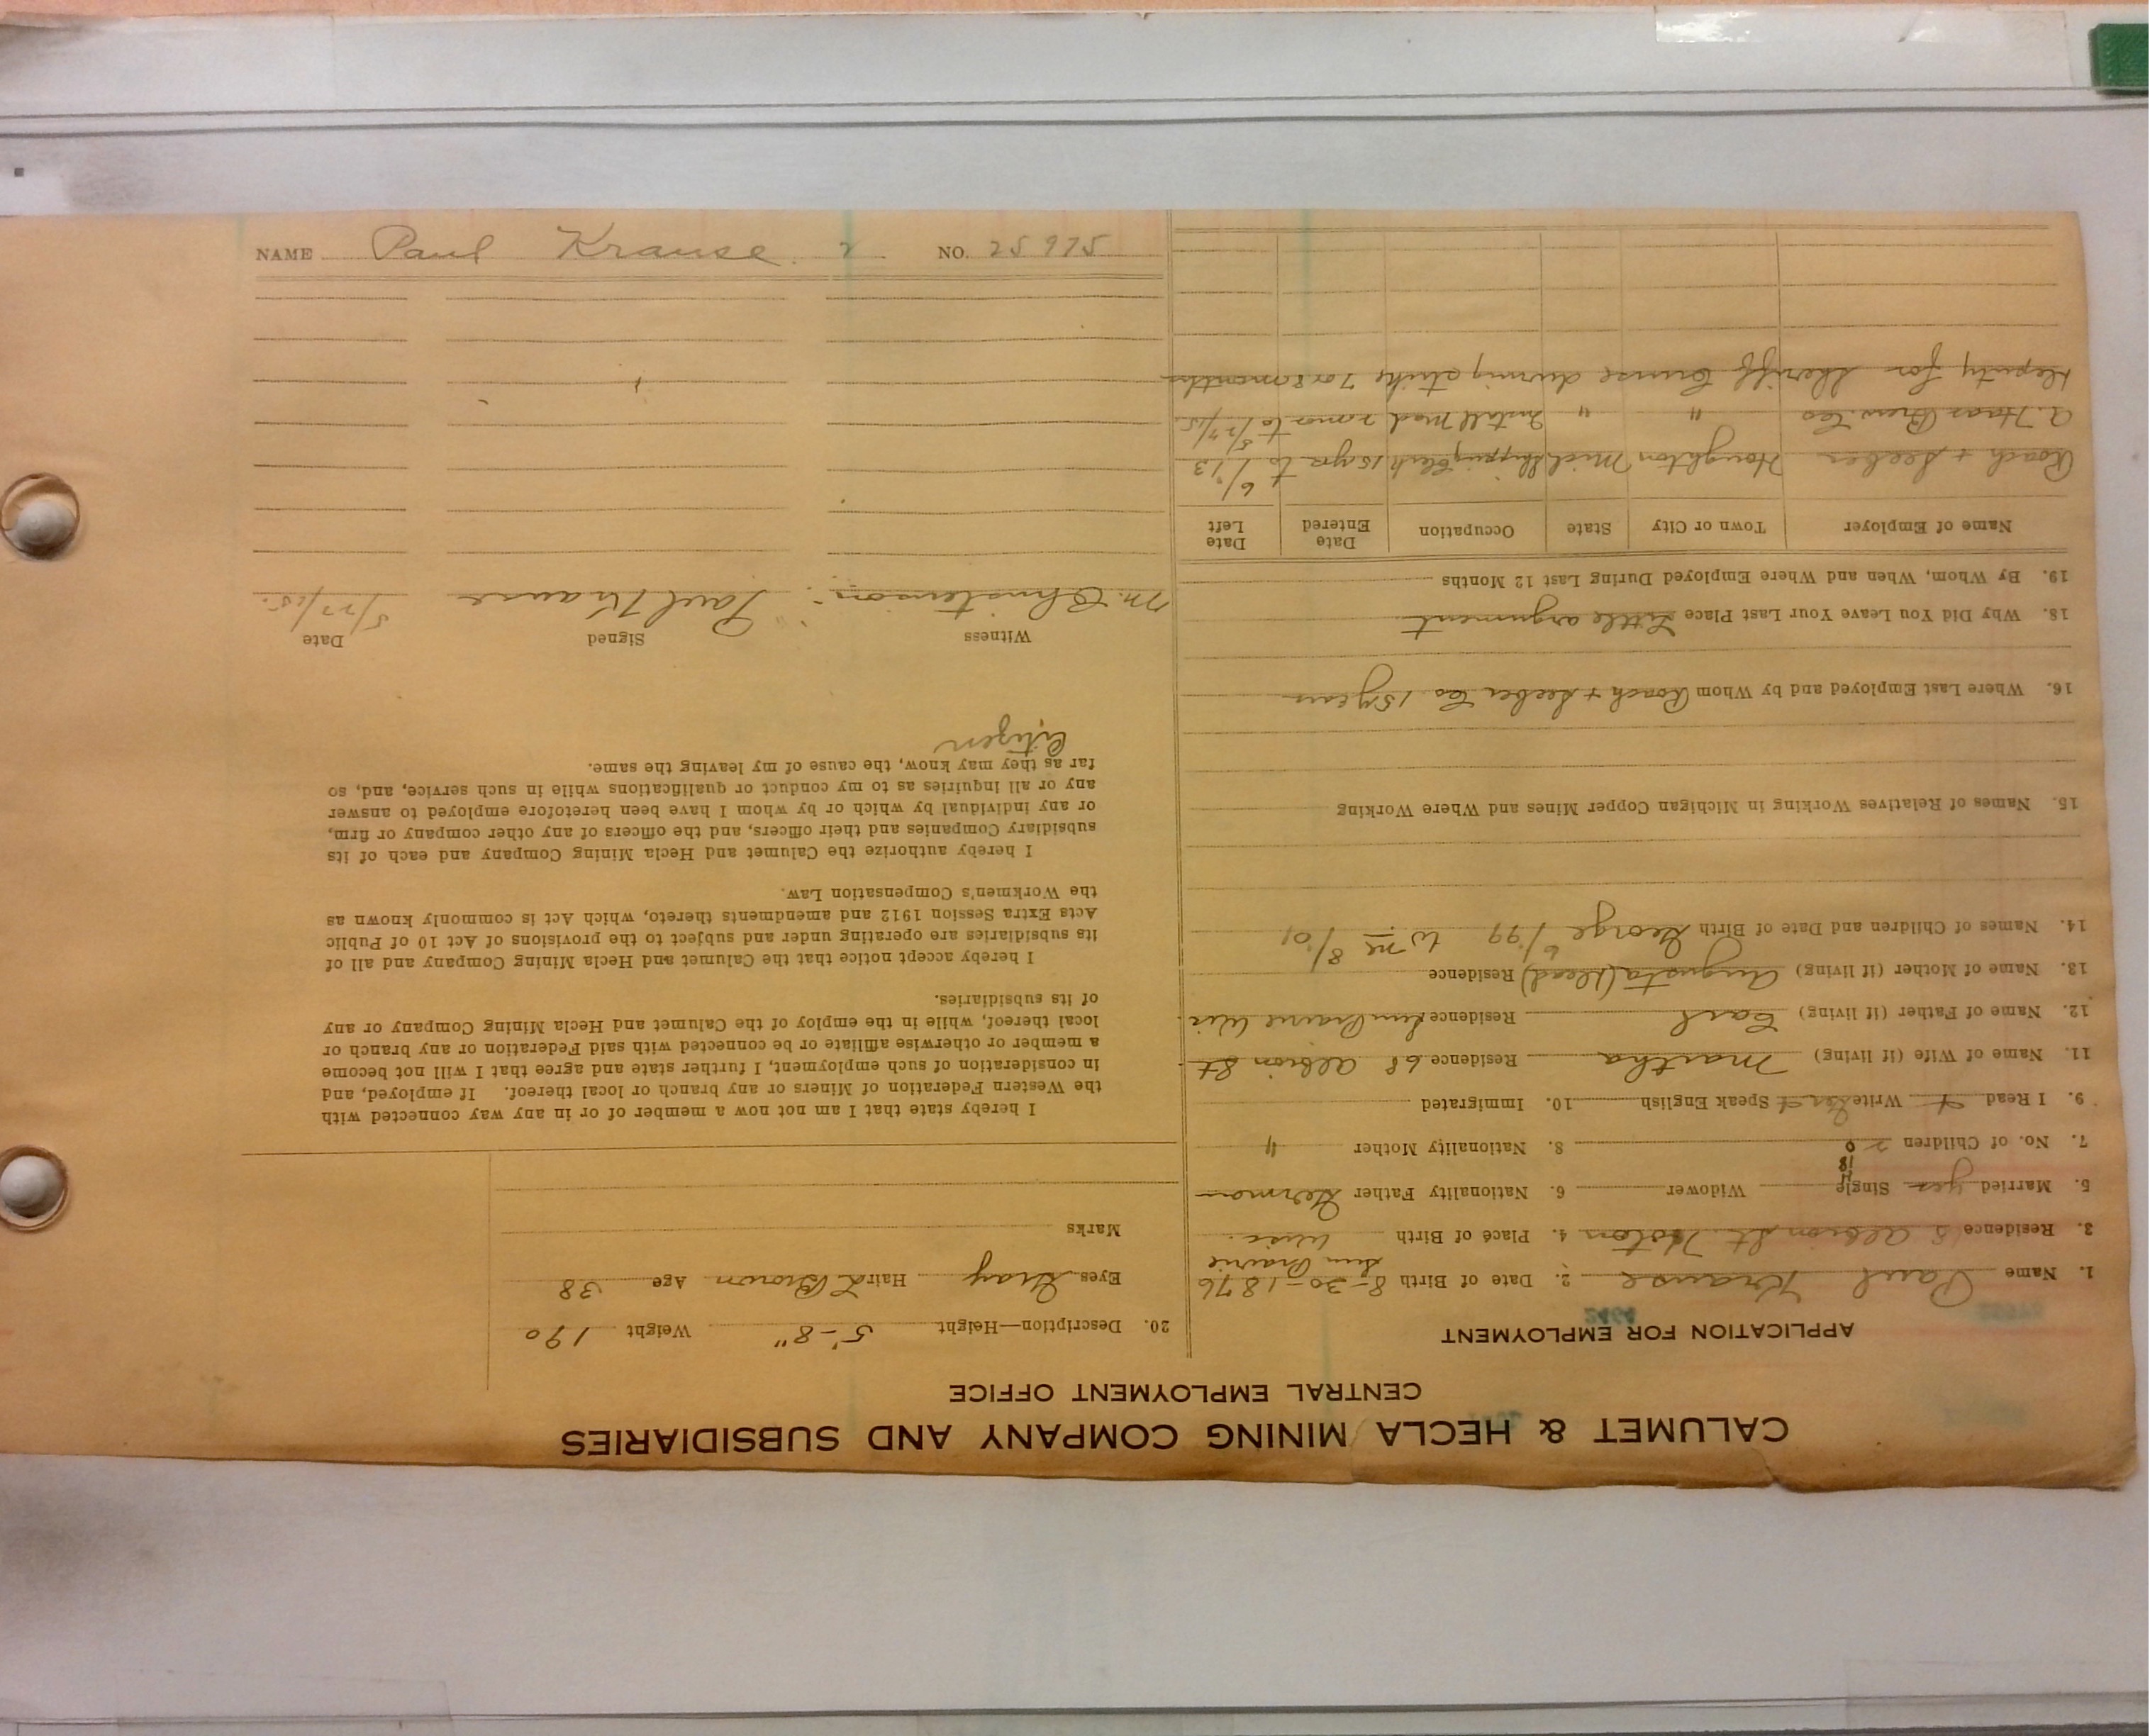 CALUMET & HECLA MINING COMPANY AND SUBSIDIARIES
CENTRAL EMPLOYMENT OFFICE
APPLICATION FOR EMPLOYMENT
1. Name Paul Krause 2. Date of Birth 8-30-1876
Sun Prairie
3. Residence Albion St. Hoton 4. Place of Birth Wisc.
5. Married yes Single Widower 6. Nationality Father German
7. No. of Children 2 8. Nationality Mother "
9. I Read Write Speak English 10. Immigrated
11. Name of Wife (if living) Martha Residence 68 Albion St
12. Name of Father (if living) Carl Residence Sun Prairie Wis.
13. Name of Mother (if living) Augusta (dead) Residence
14. Names of Children and Date of Birth George 6/99 8/01
15. Names of Relatives Working in Michigan Copper Mines and Where Working
16. Where Last Employed and by Whom Roach + Seeber Co 15 years
18. Why Did You Leave Your Last Place Little argument
19. By Whom, When and Where Employed During Last 12 Months
Name of Employer Town or City State Occupation Date Entered Date Left
Roach + Seeber Houghton Mich Shipping Clerk 15 yrs to 6/1/13
A. Haas Brew. Co " " 2 mos to 5/27/15.
Deputy for Sheriff Cruse during strike 7 or 8 months
20. Description—Height 5'-8" Weight 190
Eyes Gray Hair L Brown Age 38
Marks
I hereby state that I am not now a member of or in any way connected with
the Western Federation of Miners or any branch or local thereof. If employed, and
in consideration of such employment, I further state and agree that I will not become
a member or otherwise affiliate or be connected with said Federation or any branch or
local thereof, while in the employ of the Calumet and Hecla Mining Company or any
of its subsidiaries.
I hereby accept notice that the Calumet and Hecla Mining Company and all of
its subsidiaries are operating under and subject to the provisions of Act 10 of Public
Acts Extra Session 1912 and amendments thereto, which Act is commonly known as
the Workmen's Compensation Law.
I hereby authorize the Calumet and Hecla Mining Company and each of its
subsidiary Companies and their officers, and the officers of any other company or firm,
or any individual by which or by whom I have been heretofore employed to answer
any or all inquiries as to my conduct or qualifications while in such service, and, so
far as they may know, the cause of my leaving the same.
Citizen
Witness Signed Date
M. Christenson Paul Krause 5/27/15.
NAME Paul Krause 2 NO. 25975